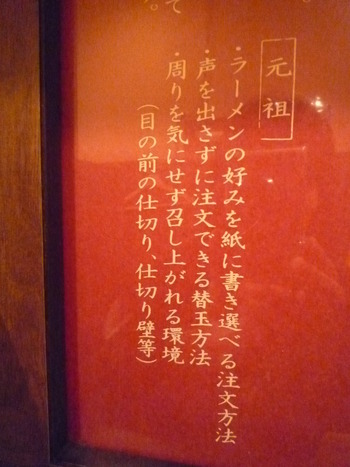 て
。
元祖
・ラーメンの好みを紙に書き選べる注文方法
・声を出さずに注文できる替玉方法
・周りを気にせず召し上がれる環境
（目の前の仕切り、仕切り壁等）